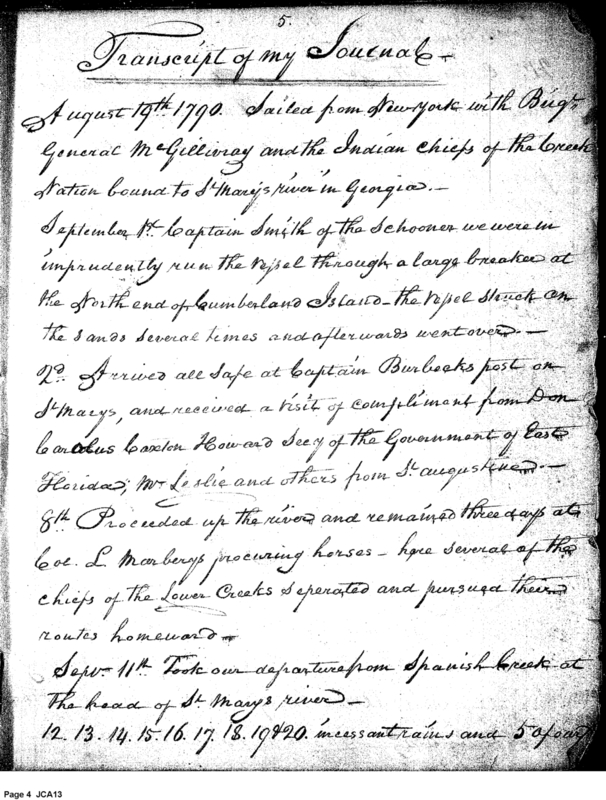 5.
Transcript of my Journal –
August 19th 1790. Sailed from New York with Brigr
General McGillivray and the Indian Chiefs of the Creek
Nation bound to St Marys river in Georgia. –
September 1st. Captain Smith of the Schooner we were in
imprudently run the vessel through a large breaker at
the North end of Cumberland Island – the vessel struck on
the sands several times and afterwards went over. –
2d. Arrived all safe at Captain Burbecks post on
St Marys, and received a visit of compliment from Don
Carolus Caxton Howard Secy of the Government of East
Florida; Mr Leslie and others from St augustine. –
8th Proceeded up the river and remained three days at
Coll. L. Marberys procuring horses – here several of the
chiefs of the Lower Creeks seperated and pursued their
routes homeward –
Sepr. 11th Took our departure from Spanish Creek at
the head of St Marys river –
12. 13. 14. 15. 16. 17. 18. 19 & 20. incessant rains and 5 of our
Page 4 JCA13